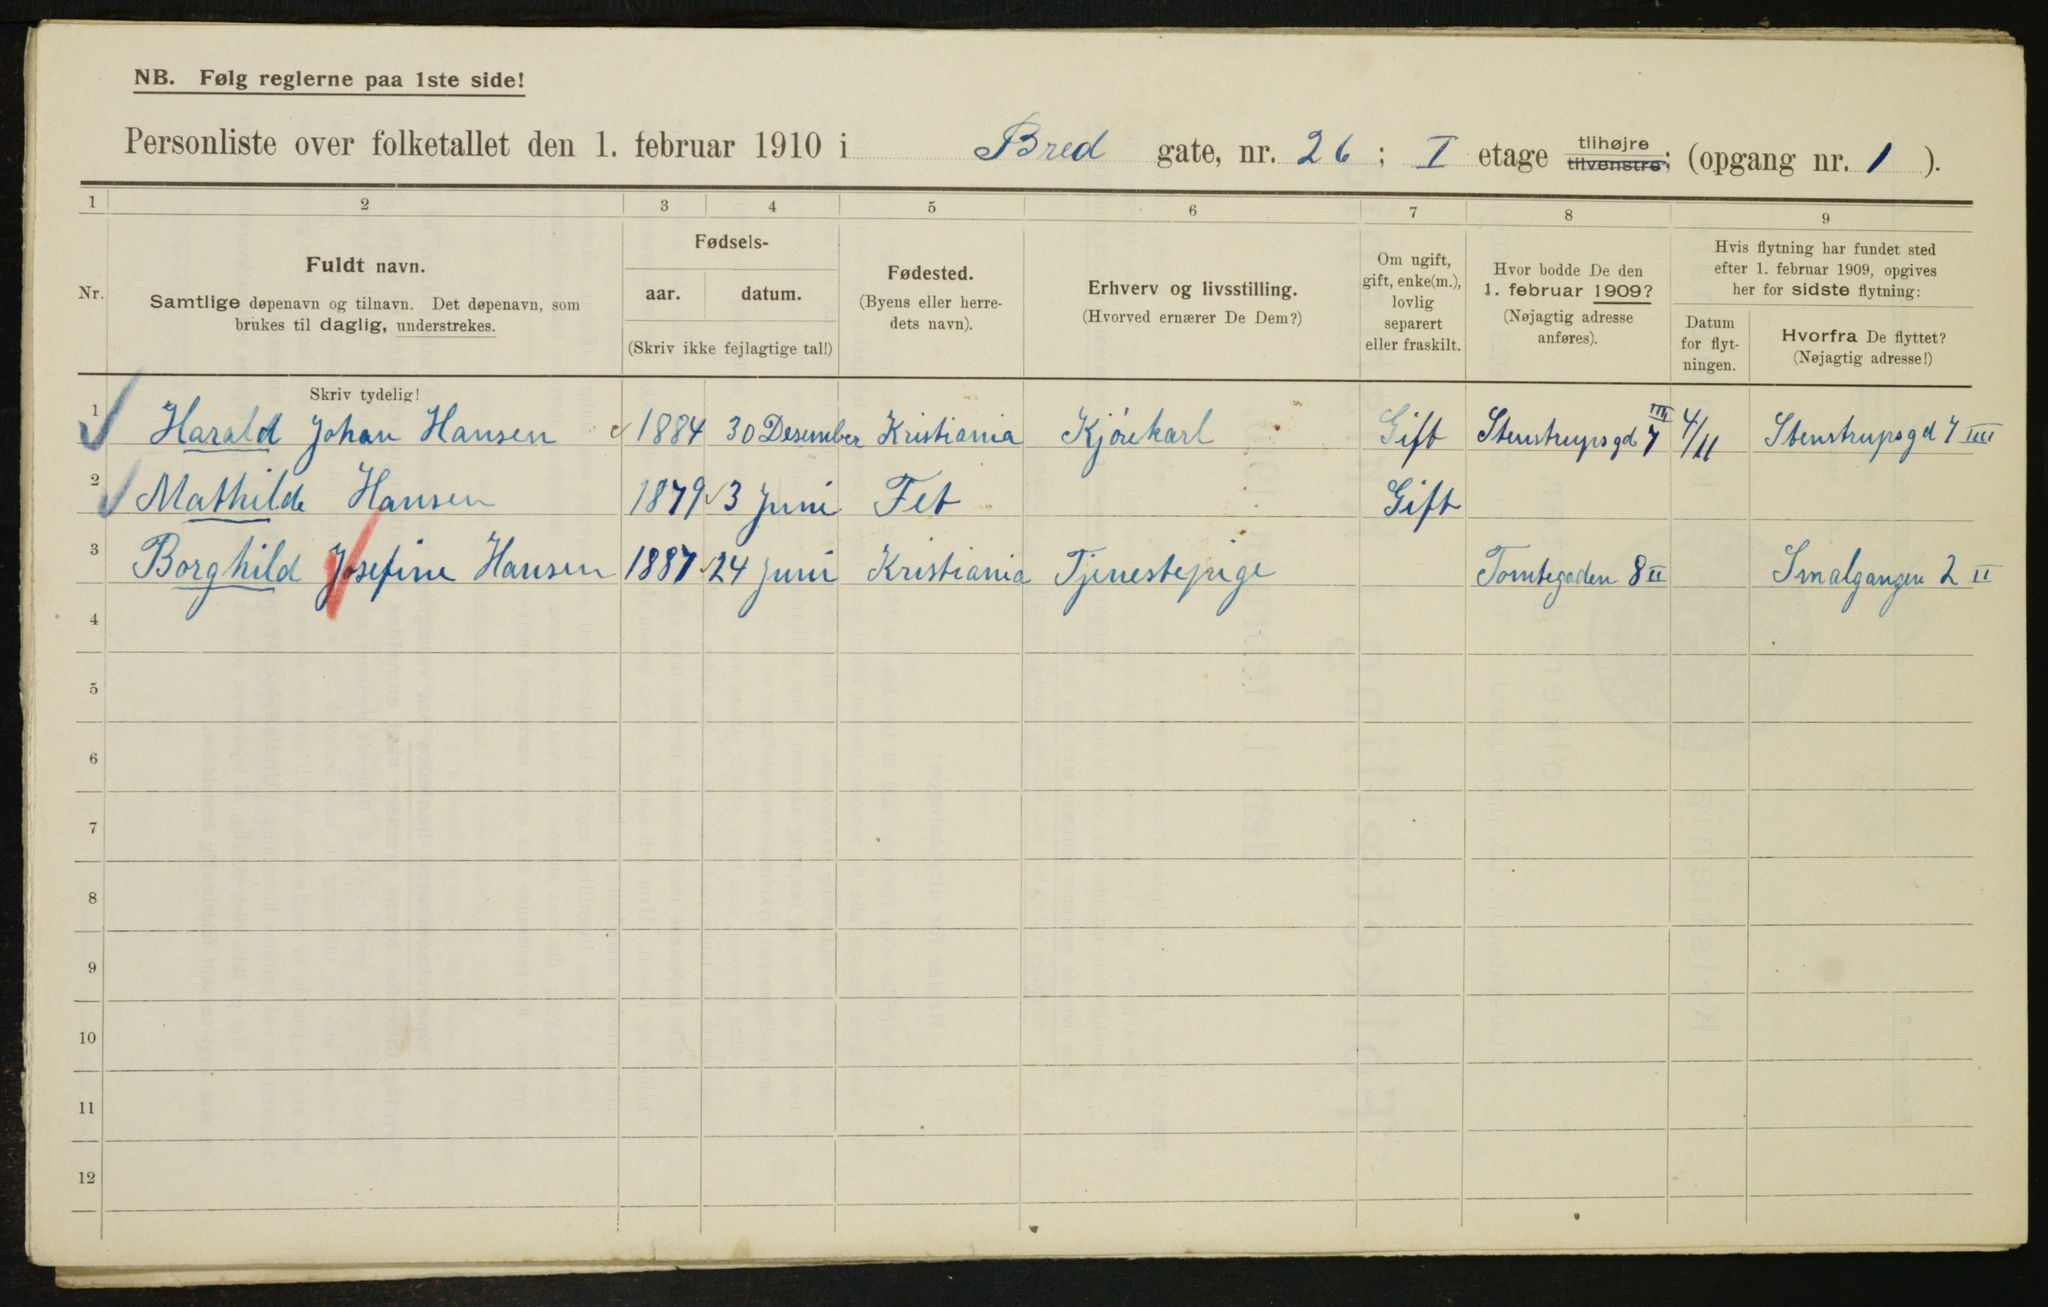 NB. Følg reglerne paa 1ste side!
Personliste over folketallet den 1. februar 1910 i Bred gate, nr. 26; I etage tilhøjre tilvenstre; (opgang nr. 1).
1 2 3 4 5 6 7 8 9
Nr.
Fuldt navn.
Samtlige døpenavn og tilnavn. Det døpenavn, som
brukes til daglig, understrekes.
Skriv tydelig!
Fødsels-
aar. datum.
(Skriv ikke fejlagtige tal!)
Fødested.
(Byens eller herre-
dets navn).
Erhverv og livsstilling.
(Hvorved ernærer De Dem?)
Om ugift,
gift, enke(m.),
lovlig
separert
eller fraskilt.
Hvor bodde De den
1. februar 1909?
(Nøjagtig adresse
anføres).
Hvis flytning har fundet sted
efter 1. februar 1909, opgives
her for sidste flytning:
Datum
for flyt-
ningen.
Hvorfra De flyttet?
(Nøjagtig adresse!)
1 Harald Johan Hansen 1884 30 Desember Kristiania Kjørekarl Gift Stenstrupsgd 7 III 4/11 Stenstrupsgd 7 III
2 Mathilde Hansen 1879 3 Juni Fet Gift
3 Borghild Josefine Hansen 1887 24 Juni Kristiania Tjenestepige Tomtegaden 8 II Smalgangen 2 II
4
5
6
7
8
9
10
11
12